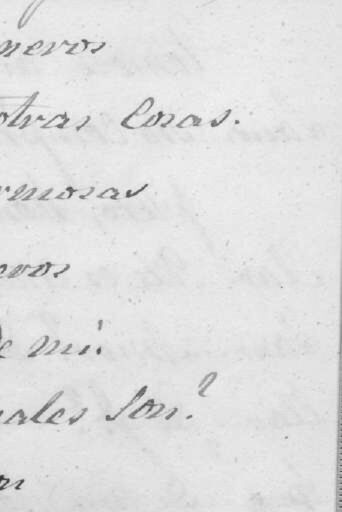 neros
otras Cosas.
rmosas
evos
de mi.
uales son?
on